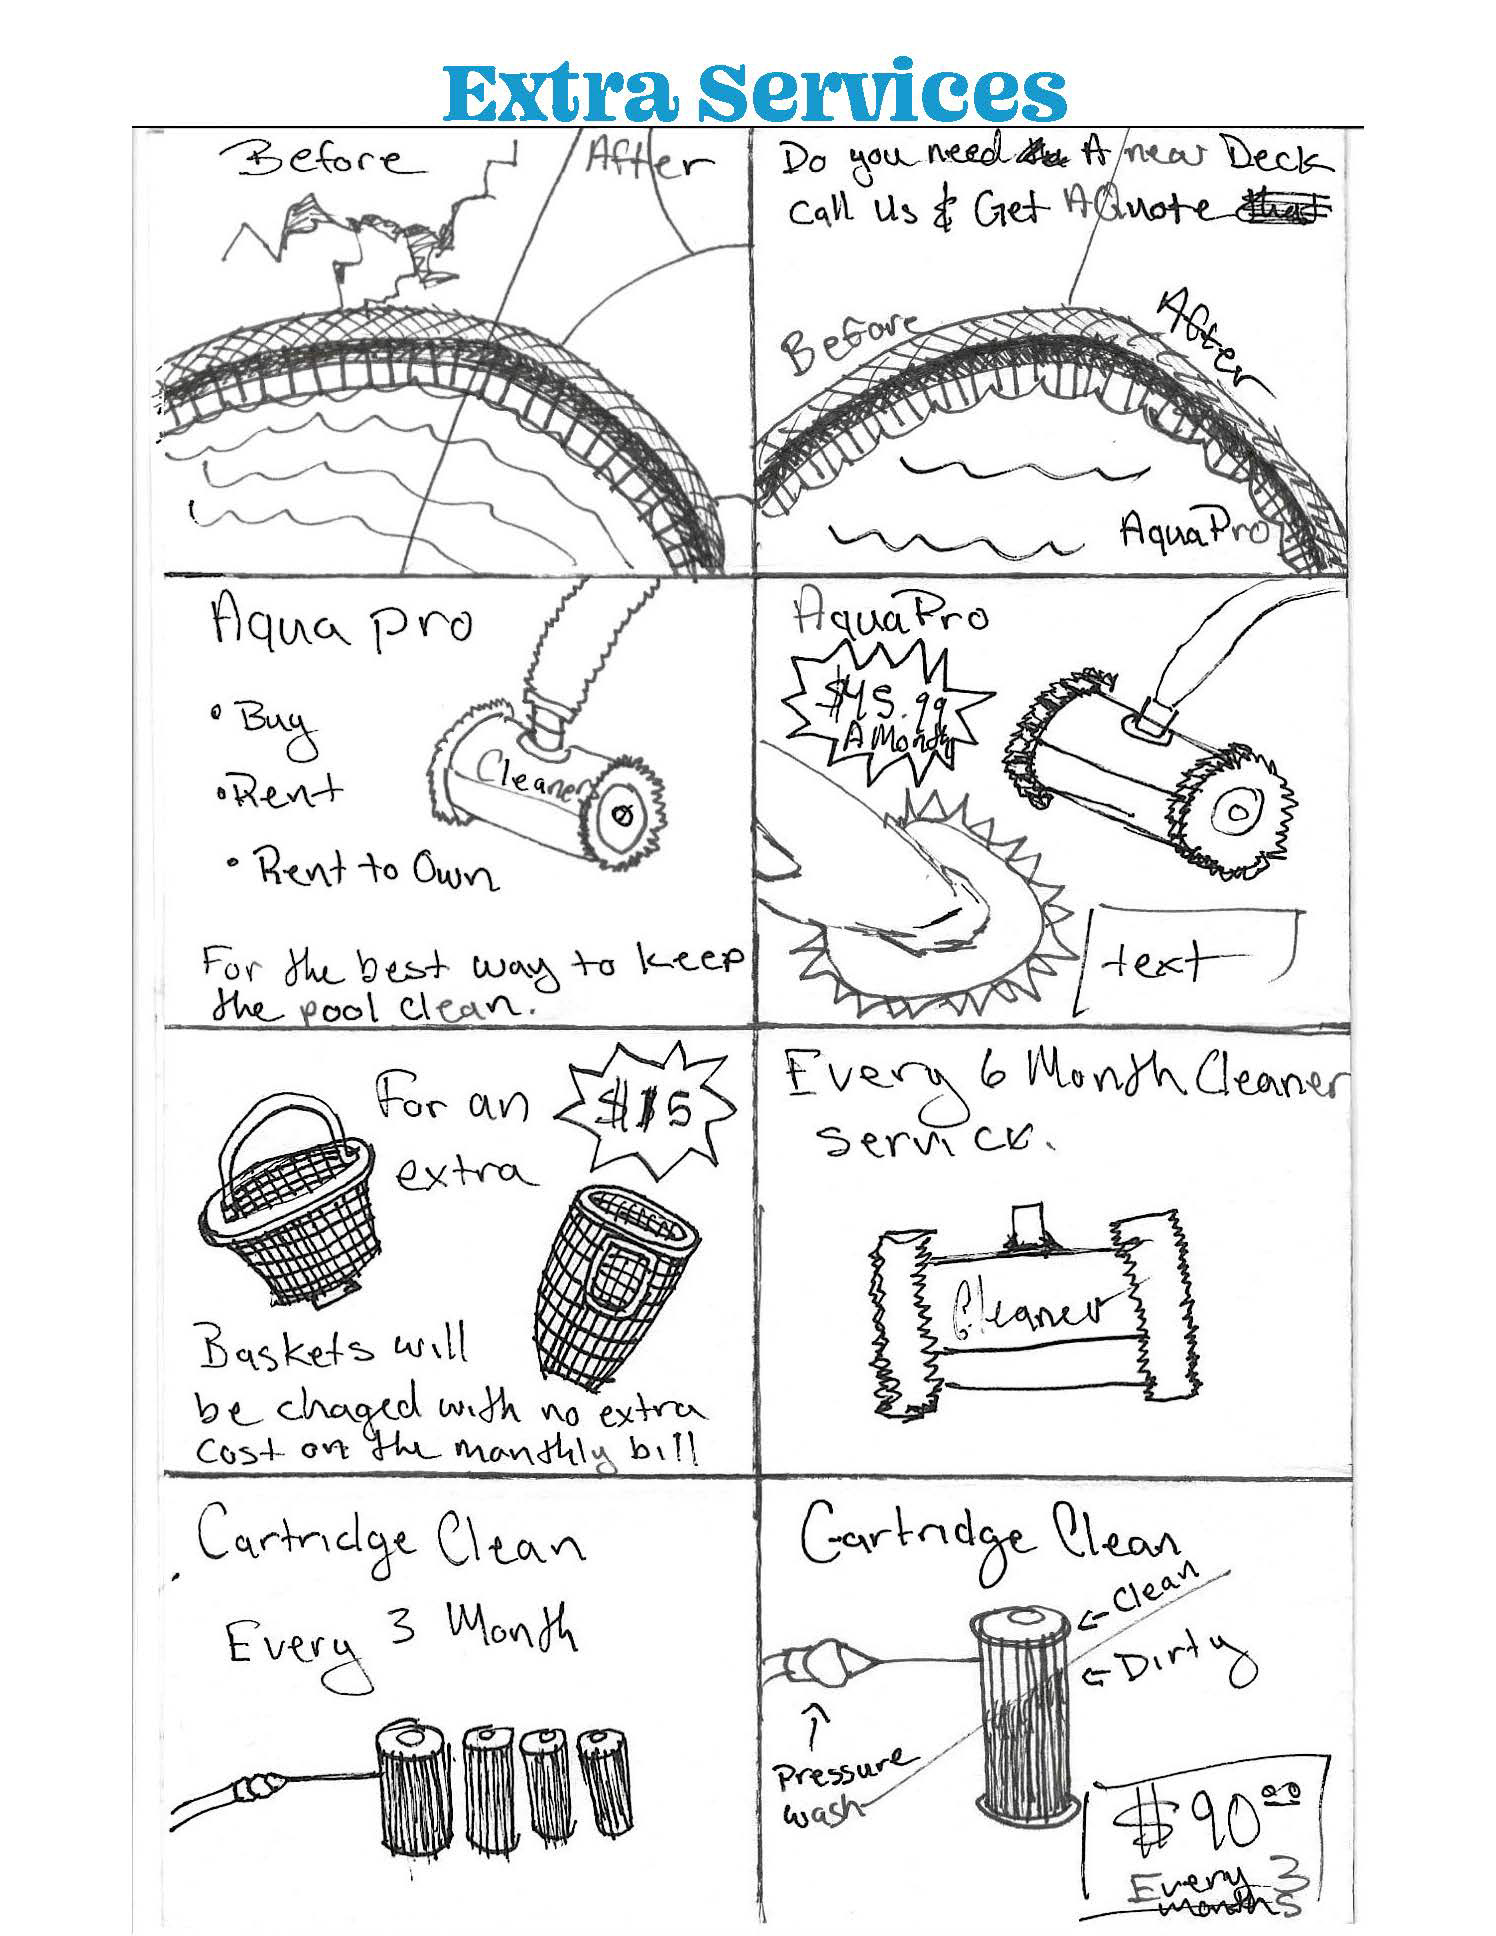 Extra Services
Before
After
Do you need A new Deck
call Us & Get A Quote
Before
After
AquaPro
Aqua pro
• Buy
• Rent
• Rent to Own
Cleaner
For the best way to keep
the pool clean.
AquaPro
$45.99
A Month
text
For an
extra
$15
Baskets will
be chaged with no extra
cost on the monthly bill
Every 6 Month Cleaner
service.
Cleaner
Cartridge Clean
Every 3 Month
Cartridge Clean
← Clean
← Dirty
Pressure
wash
$90.00
Every 3
months